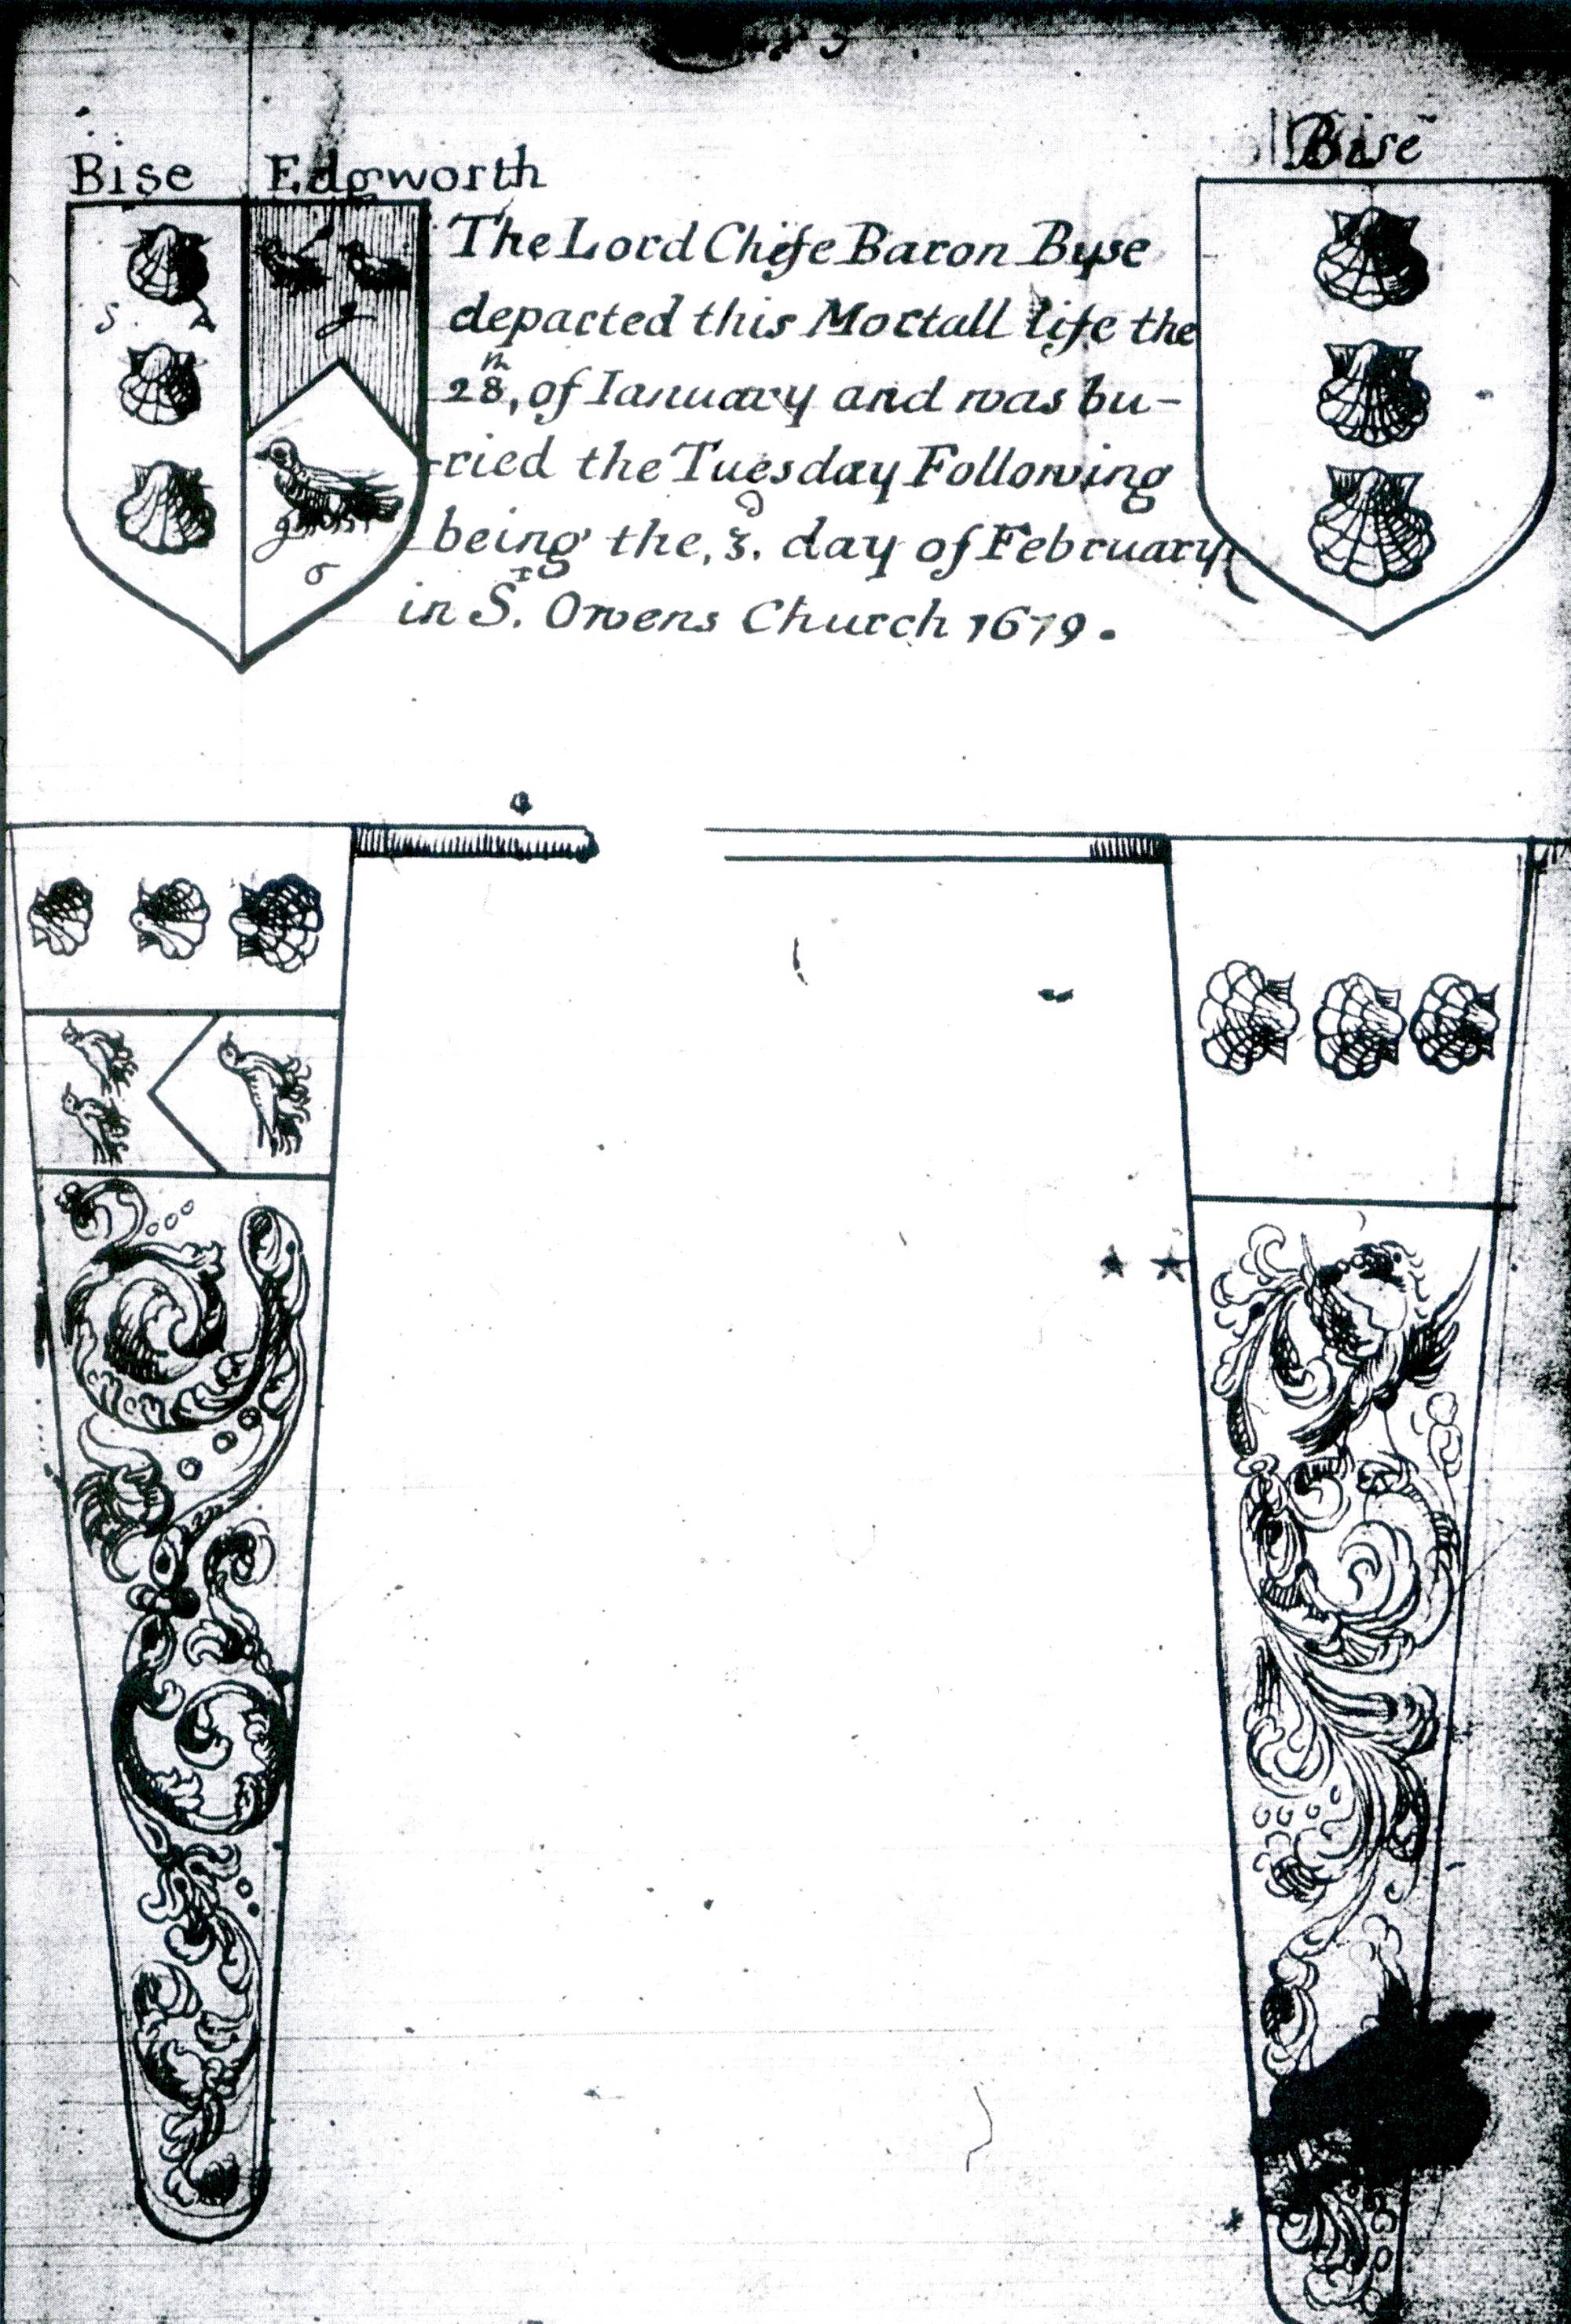 Bise Edgworth
Bise
The Lord Chife Baron Byse
departed this Mortall life the
28th, of Ianuary and was bu-
ried the Tuesday Following
being the, 3d. day of February
in St. Owens Church 1679.
S. A
g
g
o